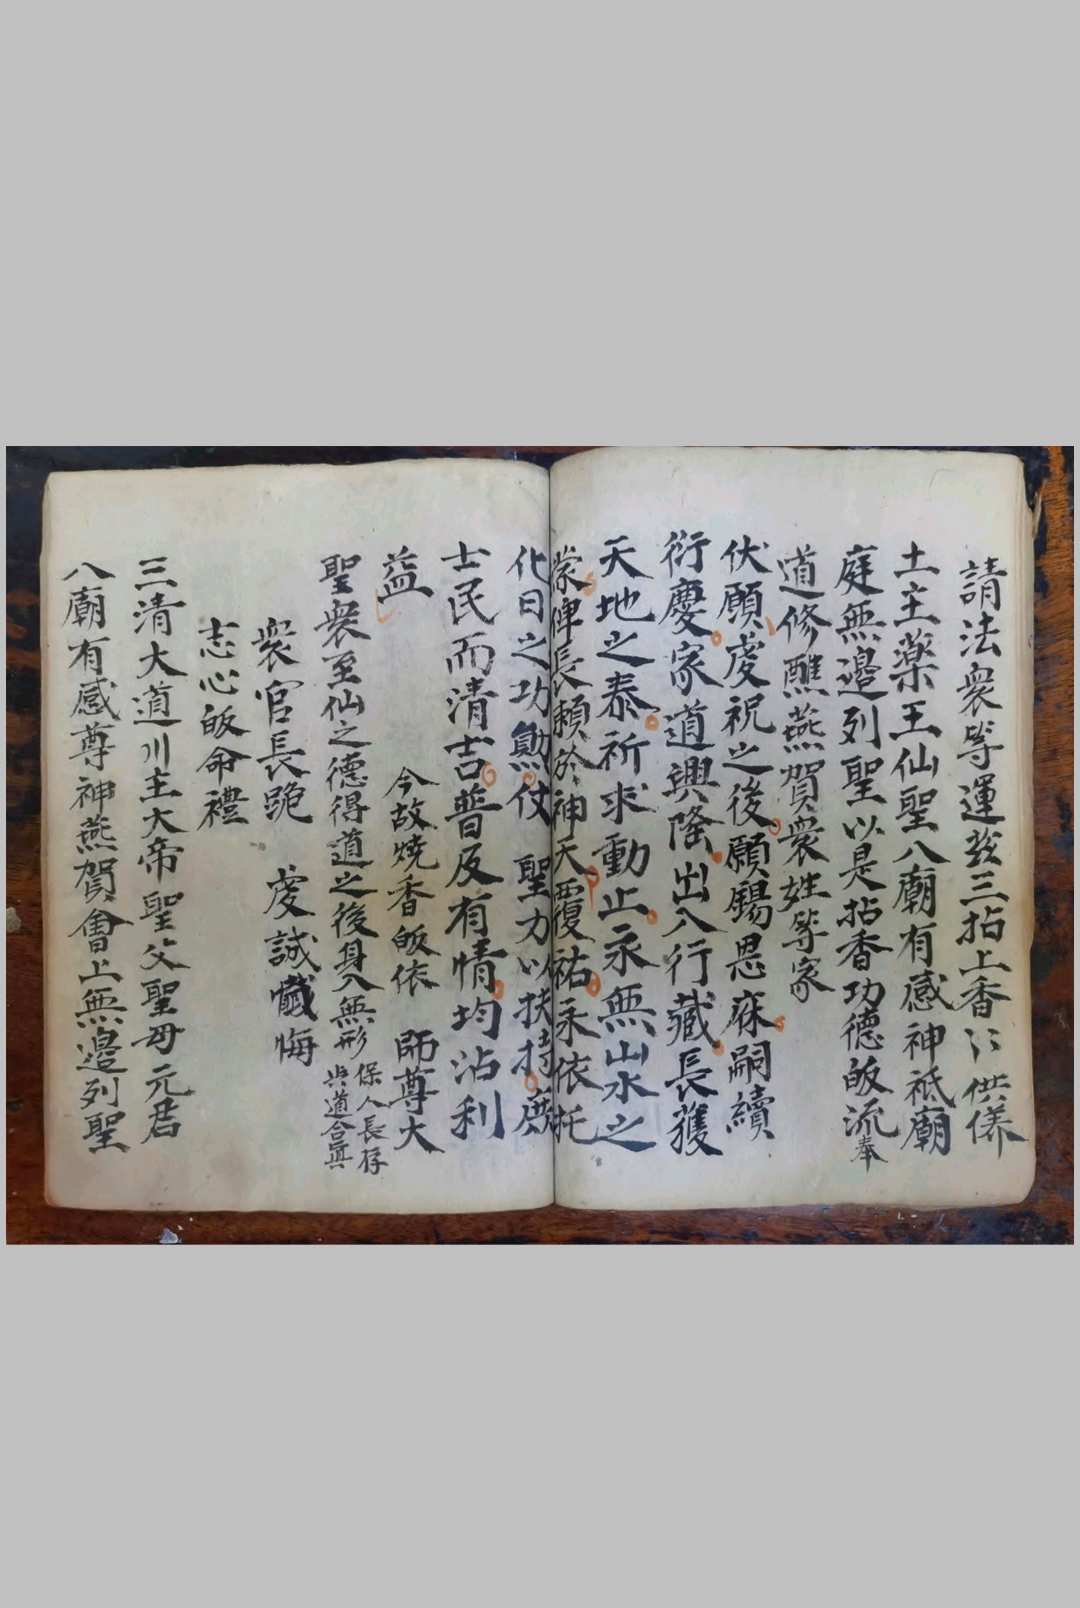 請法衆等運玆三拈上香
供儀
土主藥王仙聖八廟有感神祗廟
庭無邉列聖以是拈香功德皈流奉
道修醮燕賀衆姓等家
伏願虔祝之後願錫恩庥嗣續
衍慶家道興隆出入行藏長獲
天地之泰祈求動止永無山水之
蒙俾長賴於神天覆祐永依托
化日之功勲仗 聖力以扶持庶
士民而清吉普及有情均沾利
益
今故燒香皈依 師尊大
聖衆至仙之德得道之後身入無形 保人長存 共道合眞
衆官長跪 虔誠懺悔
志心皈命禮
三清大道川主大帝聖父聖母元君
八廟有感尊神燕賀會上無邉列聖